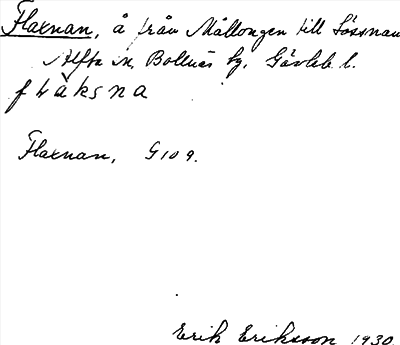 Flaxnan, å från Mållongen till Lössnan
Alfta sn, Bollnäs tg, Gävleb l.
flàksna
Flaxnan, G 109.
Erik Eriksson 1930.